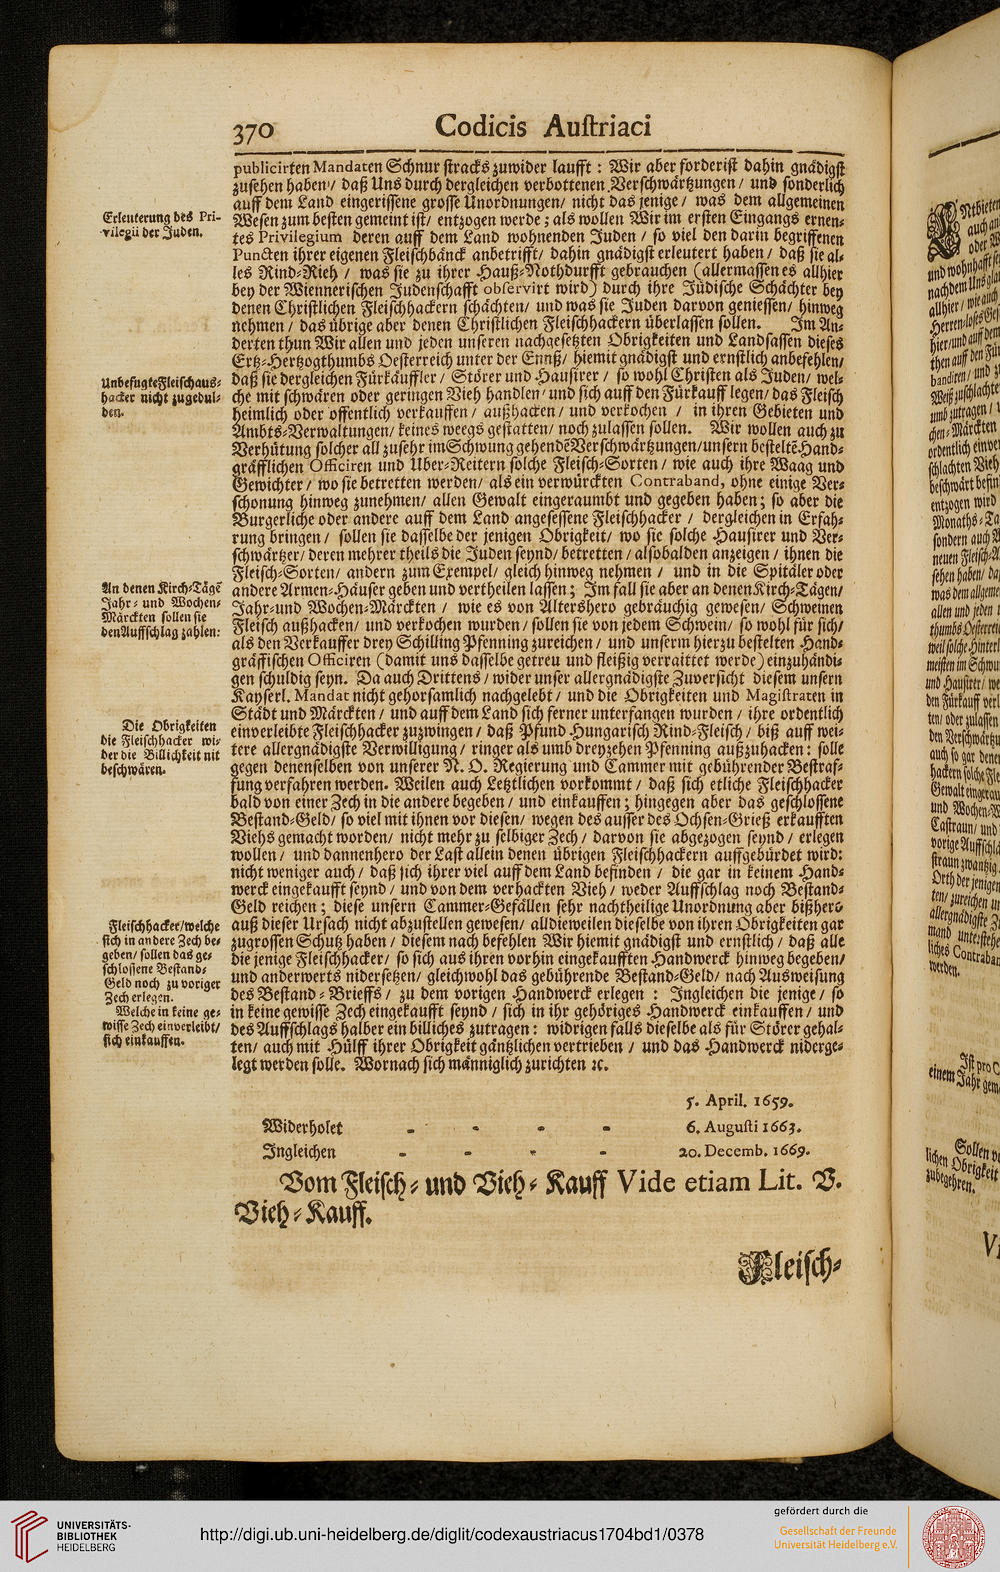 370 Codicis Austriaci
publicirten Mandaten Schnur stracks zuwider laufft : Wir aber forderist dahin gnädigst
zusehen haben / daß Uns durch dergleichen verbottenen Verschwärtzungen / und sonderlich
auff dem Land eingerissene grosse Unordnungen / nicht das jenige / was dem allgemeinen
Wesen zum besten gemeint ist / entzogen werde ; als wollen Wir im ersten Eingangs ernen-
tes Privilegium deren auff dem Land wohnenden Juden / so viel den darin begriffenen
Puncten ihrer eigenen Fleischbänck anbetrifft / dahin gnädigst erleutert haben / daß sie al-
les Rind-Rieh / was sie zu ihrer Hauß-Nothdurfft gebrauchen (allermassen es allhier
bey der Wiennerischen Judenschafft observirt wird) durch ihre Jüdische Schächter bey
denen Christlichen Fleischhackern schächten / und was sie Juden darvon geniessen / hinweg
nehmen / das übrige aber denen Christlichen Fleischhackern überlassen sollen. Im An-
derten thun Wir allen und jeden unseren nachgesetzten Obrigkeiten und Landsassen dieses
Ertz-Hertzogthumbs Oesterreich unter der Ennß / hiemit gnädigst und ernstlich anbefehlen /
daß sie dergleichen Fürkäuffler / Störer und Hausirer / so wohl Christen als Juden / wel-
che mit schwären oder geringen Vieh handlen / und sich auff den Fürkauff legen / das Fleisch
heimlich oder offentlich verkauffen / außhacken / und verkochen / in ihren Gebieten und
Ambts-Verwaltungen / keines weegs gestatten / noch zulassen sollen. Wir wollen auch zu
Verhütung solcher all zusehr im Schwung gehendẽ Verschwärtzungen / unsern besteltẽ Hand-
gräfflichen Officiren und Uber-Reitern solche Fleisch-Sorten / wie auch ihre Waag und
Gewichter / wo sie betretten werden / als ein verwürckten Contraband, ohne einige Ver-
schonung hinweg zunehmen / allen Gewalt eingeraumbt und gegeben haben ; so aber die
Burgerliche oder andere auff dem Land angesessene Fleischhacker / dergleichen in Erfah-
rung bringen / sollen sie dasselbe der jenigen Obrigkeit / wo sie solche Hausirer und Ver-
schwärtzer / deren mehrer theils die Juden seynd / betretten / alsobalden anzeigen / ihnen die
Fleisch-Sorten / andern zum Exempel / gleich hinweg nehmen / und in die Spitäler oder
andere Armen-Häuser geben und vertheilen lassen ; Im fall sie aber an denen Kirch-Tägen /
Jahr-und Wochen-Märckten / wie es von Altershero gebräuchig gewesen / Schweinen
Fleisch außhacken / und verkochen wurden / sollen sie von jedem Schwein / so wohl für sich /
als den Verkauffer drey Schilling Pfenning zureichen / und unserm hierzu bestelten Hand-
gräffischen Officiren (damit uns dasselbe getreu und fleißig verraittet werde) einzuhändi-
gen schuldig seyn. Da auch Drittens / wider unser allergnädigste Zuversicht diesem unsern
Kayserl. Mandat nicht gehorsamlich nachgelebt / und die Obrigkeiten und Magistraten in
Städt und Märckten / und auff dem Land sich ferner unterfangen wurden / ihre ordentlich
einverleibte Fleischhacker zuzwingen / daß Pfund Hungarisch Rind-Fleisch / biß auff wei-
tere allergnädigste Verwilligung / ringer als umb dreyzehen Pfenning außzuhacken : solle
gegen denenselben von unserer N. O. Regierung und Cammer mit gebührender Bestraf-
fung verfahren werden. Weilen auch Letztlichen vorkommt / daß sich etliche Fleischhacker
bald von einer Zech in die andere begeben / und einkauffen ; hingegen aber das geschlossene
Bestand-Geld / so viel mit ihnen vor diesen / wegen des ausser des Ochsen-Grieß erkaufften
Viehs gemacht worden / nicht mehr zu selbiger Zech / darvon sie abgezogen seynd / erlegen
wollen / und dannenhero der Last allein denen übrigen Fleischhackern auffgebürdet wird:
nicht weniger auch / daß sich ihrer viel auff dem Land befinden / die gar in keinem Hand-
werck eingekaufft seynd / und von dem verhackten Vieh / weder Auffschlag noch Bestand-
Geld reichen ; diese unsern Cammer-Gefällen sehr nachtheilige Unordnung aber bißhero
auß dieser Ursach nicht abzustellen gewesen / alldieweilen dieselbe von ihren Obrigkeiten gar
zugrossen Schutz haben / diesem nach befehlen Wir hiemit gnädigst und ernstlich / daß alle
die jenige Fleischhacker / so sich aus ihren vorhin eingekaufften Handwerck hinweg begeben /
und anderwerts nidersetzen / gleichwohl das gebührende Bestand-Geld / nach Ausweisung
des Bestand-Brieffs / zu dem vorigen Handwerck erlegen : Ingleichen die jenige / so
in keine gewisse Zech eingekaufft seynd / sich in ihr gehöriges Handwerck einkauffen / und
des Auffschlags halber ein billiches zutragen : widrigen falls dieselbe als für Störer gehal-
ten / auch mit Hülff ihrer Obrigkeit gäntzlichen vertrieben / und das Handwerck niderge-
legt werden solle. Wornach sich männiglich zurichten ꝛc.
5. April. 1659.
Widerholet - - - - 6. Augusti 1663.
Ingleichen - - - - 20. Decemb. 1669.
Vom Fleisch- und Vieh-Kauff Vide etiam Lit. V.
Vieh-Kauff.
Fleisch-
Erleuterung des Pri-
vilegii der Juden.
Unbefugte Fleischaus-
hacker nicht zugedul-
den.
An denen Kirch-Tägẽ
Jahr- und Wochen-
Märckten sollen sie
den Auffschlag zahlen:
Die Obrigkeiten
die Fleischhacker wi-
der die Billichkeit nit
beschwären.
Fleischhacker / welche
sich in andere Zech be-
geben / sollen das ge-
schlossene Bestand-
Geld noch zu voriger
Zech erlegen.
Welche in keine ge-
wisse Zech einverleibt /
sich einkauffen.
UNIVERSITÄTS-
BIBLIOTHEK
HEIDELBERG
http://digi.ub.uni-heidelberg.de/diglit/codexaustriacus1704bd1/0378
gefördert durch die
Gesellschaft der Freunde
Universität Heidelberg e.V.